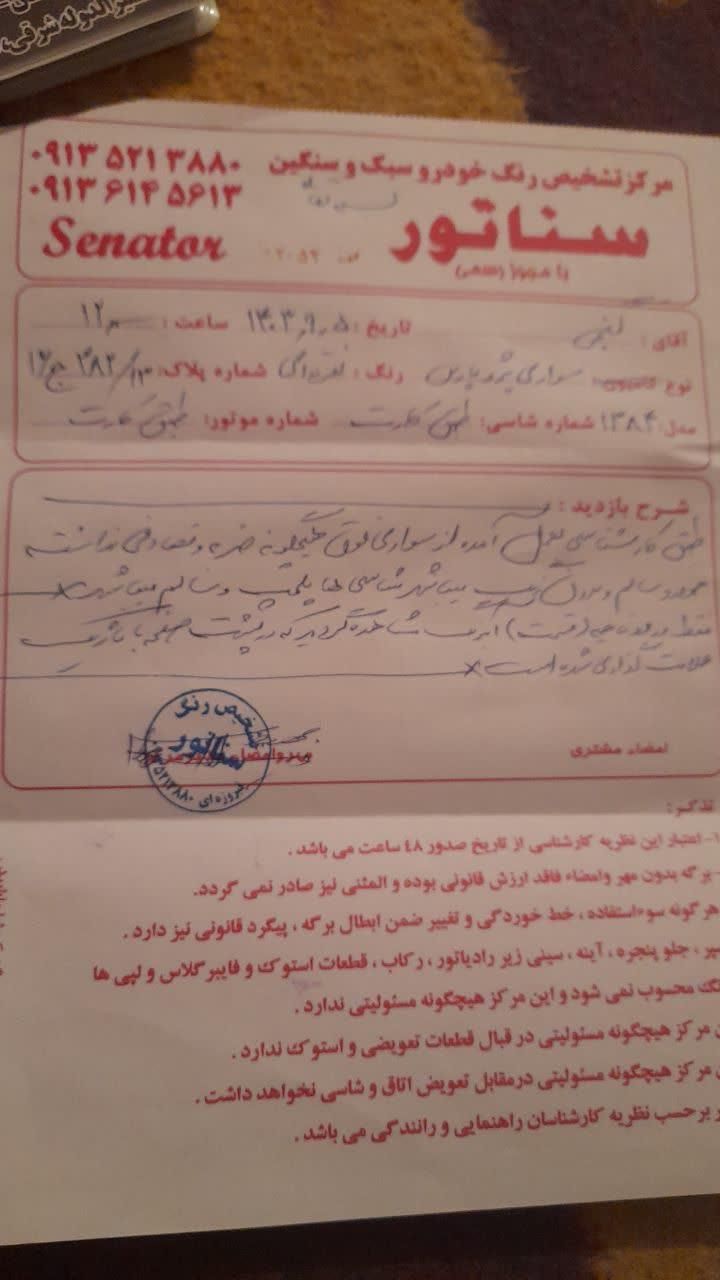 شیرالدوله شرقی
مرکز تشخیص رنگ خودرو سبک و سنگین
۰۹۱۳ ۵۲۱ ۳۸۸۰
۰۹۱۳ ۶۱۴ ۵۶۱۳
سناتور
Senator
با مجوز رسمی
آقای: تاریخ: ۱۴۰۳,۹,۵ ساعت: ۱۲
نوع کامیون: سواری پژو پارس رنگ: نقره‌ای شماره پلاک:
مدل: ۱۳۸۴ شماره شاسی: طبق کارت شماره موتور: طبق کارت
شرح بازدید:
طبق کارشناسی بعمل آمده از سواری فوق هیچگونه ضربه و تصادفی نداشته
سالم و بدون رنگ میباشد شاسی ها پلمپ و سالم میباشد
فقط در دو ناحیه (قسمت) مشاهده گردید که در پشت صفحه با
علامت گذاری شده است
تشخیص رنگ
سناتور
فیروزه ای ۵۲۱۳۸۸۰
امضاء مشتری
تذکر:
۱- اعتبار این نظریه کارشناسی از تاریخ صدور ۴۸ ساعت می باشد.
- برگه بدون مهر وامضاء فاقد ارزش قانونی بوده و المثنی نیز صادر نمی گردد.
هرگونه سوءاستفاده، خط خوردگی و تغییر ضمن ابطال برگه، پیگرد قانونی نیز دارد.
سپر، جلو پنجره، آینه، سینی زیر رادیاتور، رکاب، قطعات استوک و فایبرگلاس و لپی ها
محسوب نمی شود و این مرکز هیچگونه مسئولیتی ندارد.
مرکز هیچگونه مسئولیتی در قبال قطعات تعویضی و استوک ندارد.
مرکز هیچگونه مسئولیتی درمقابل تعویض اتاق و شاسی نخواهد داشت.
برحسب نظریه کارشناسان راهنمایی و رانندگی می باشد.